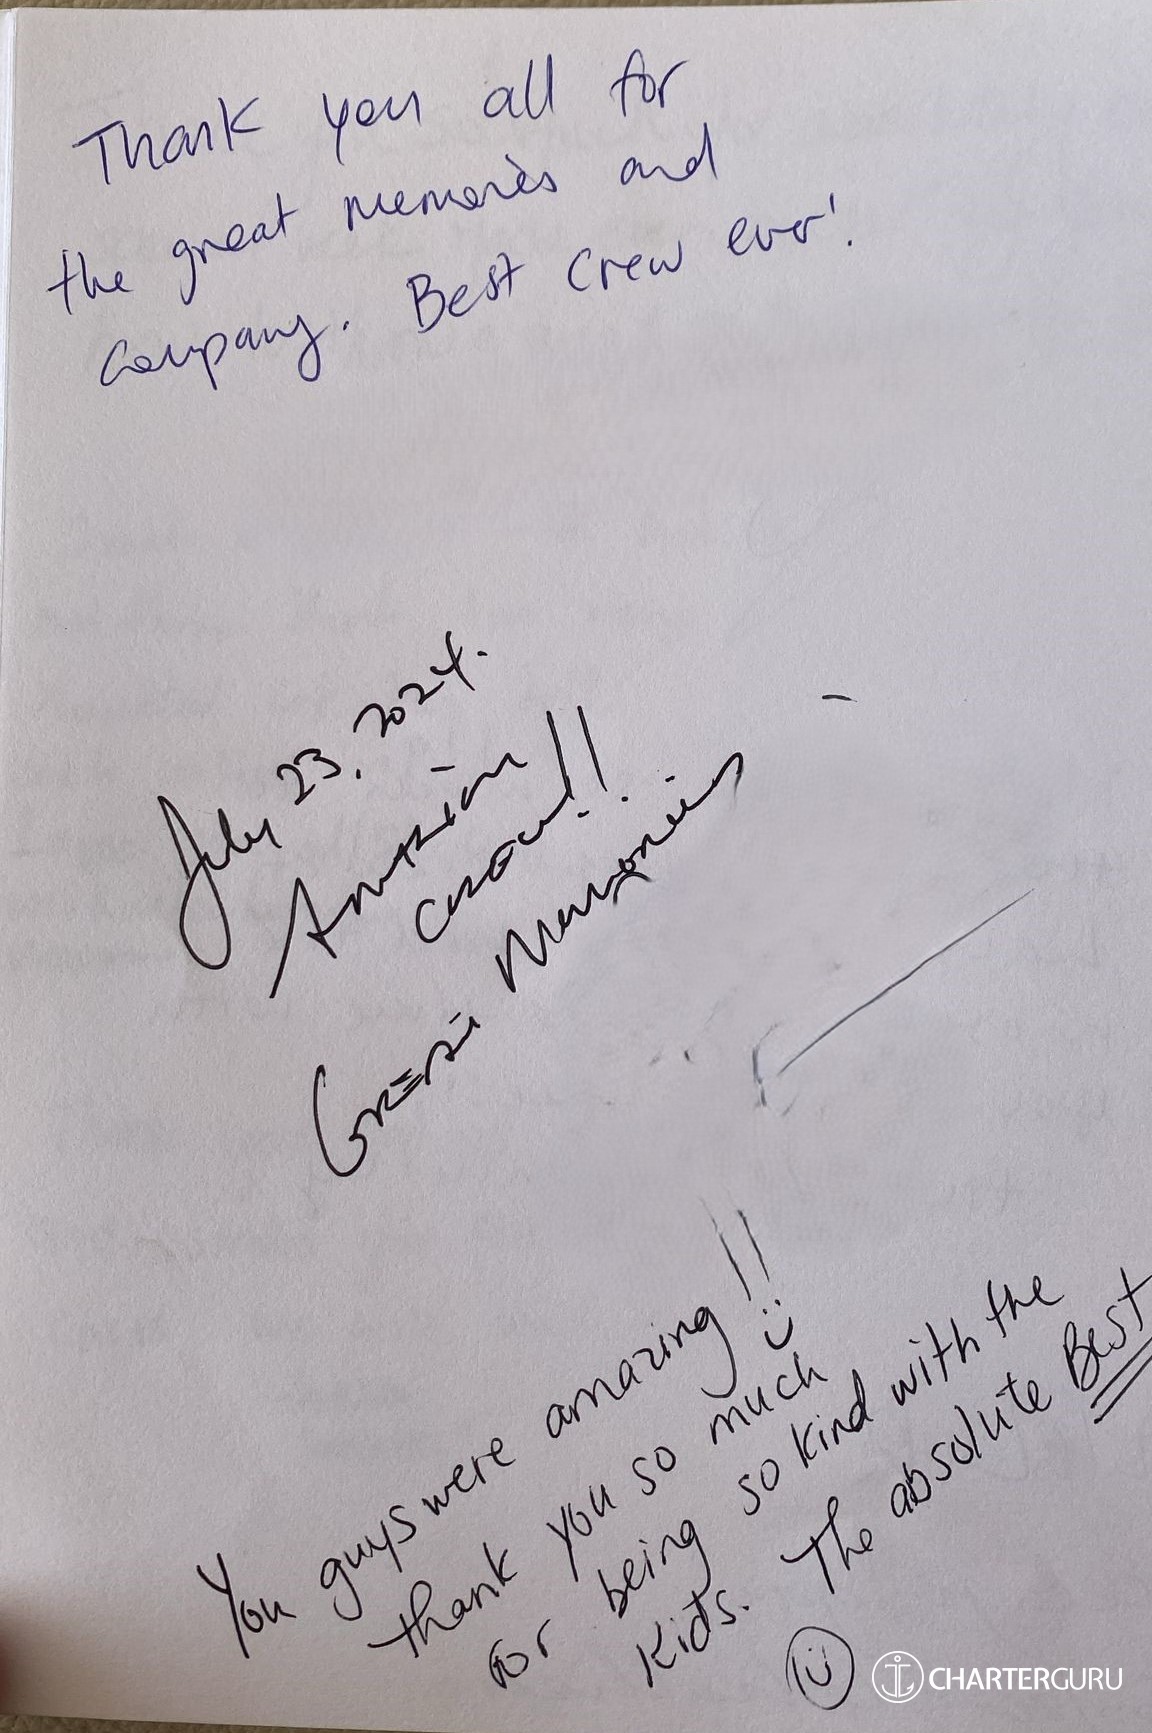 Thank you all for
the great memories and
company. Best crew ever!
July 23, 2024.
Amazing
crew!!
Great Memories
You guys were amazing!!
thank you so much
for being so kind with the
kids. The absolute Best
CHARTERGURU